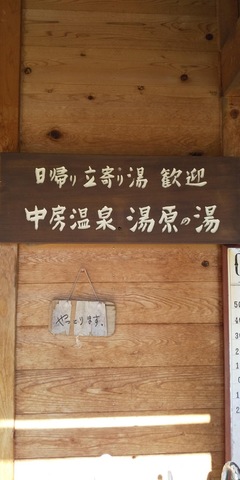 日帰り立寄り湯 歓迎
中房温泉 湯原の湯
やっとります。